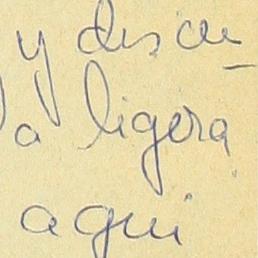 y discu-
a ligera
aqui